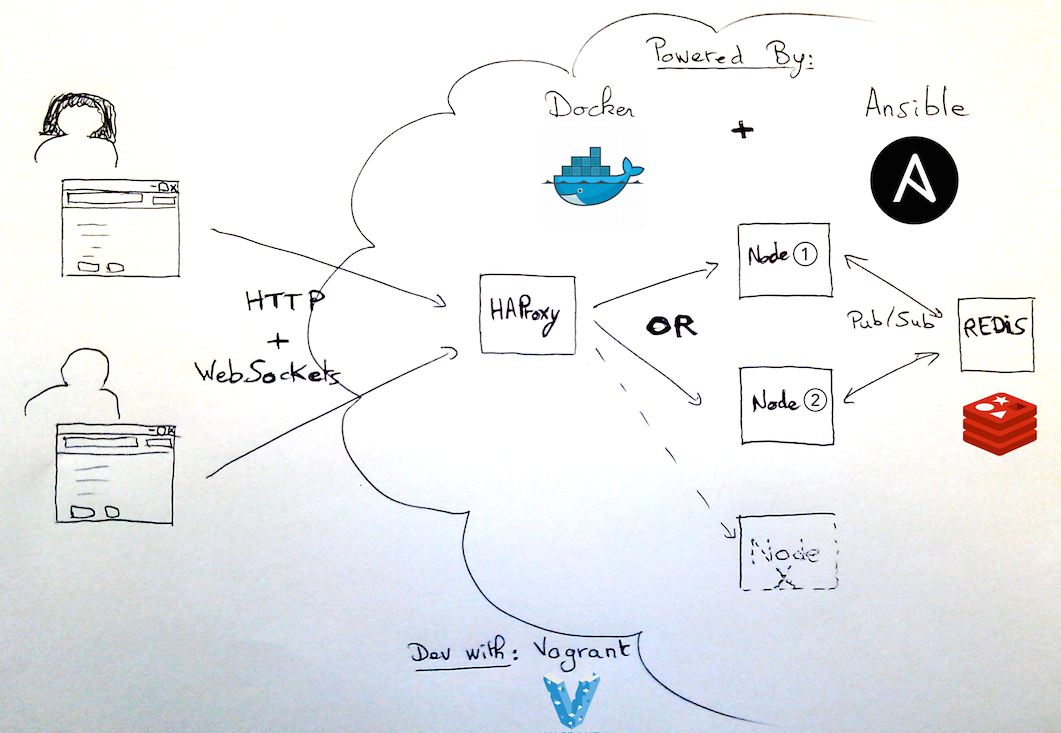 Powered By:
Docker
+
Ansible
HTTP
+
WebSockets
HAProxy
OR
Node 1
Node 2
Node
X
Pub/Sub
REDiS
Dev with: Vagrant